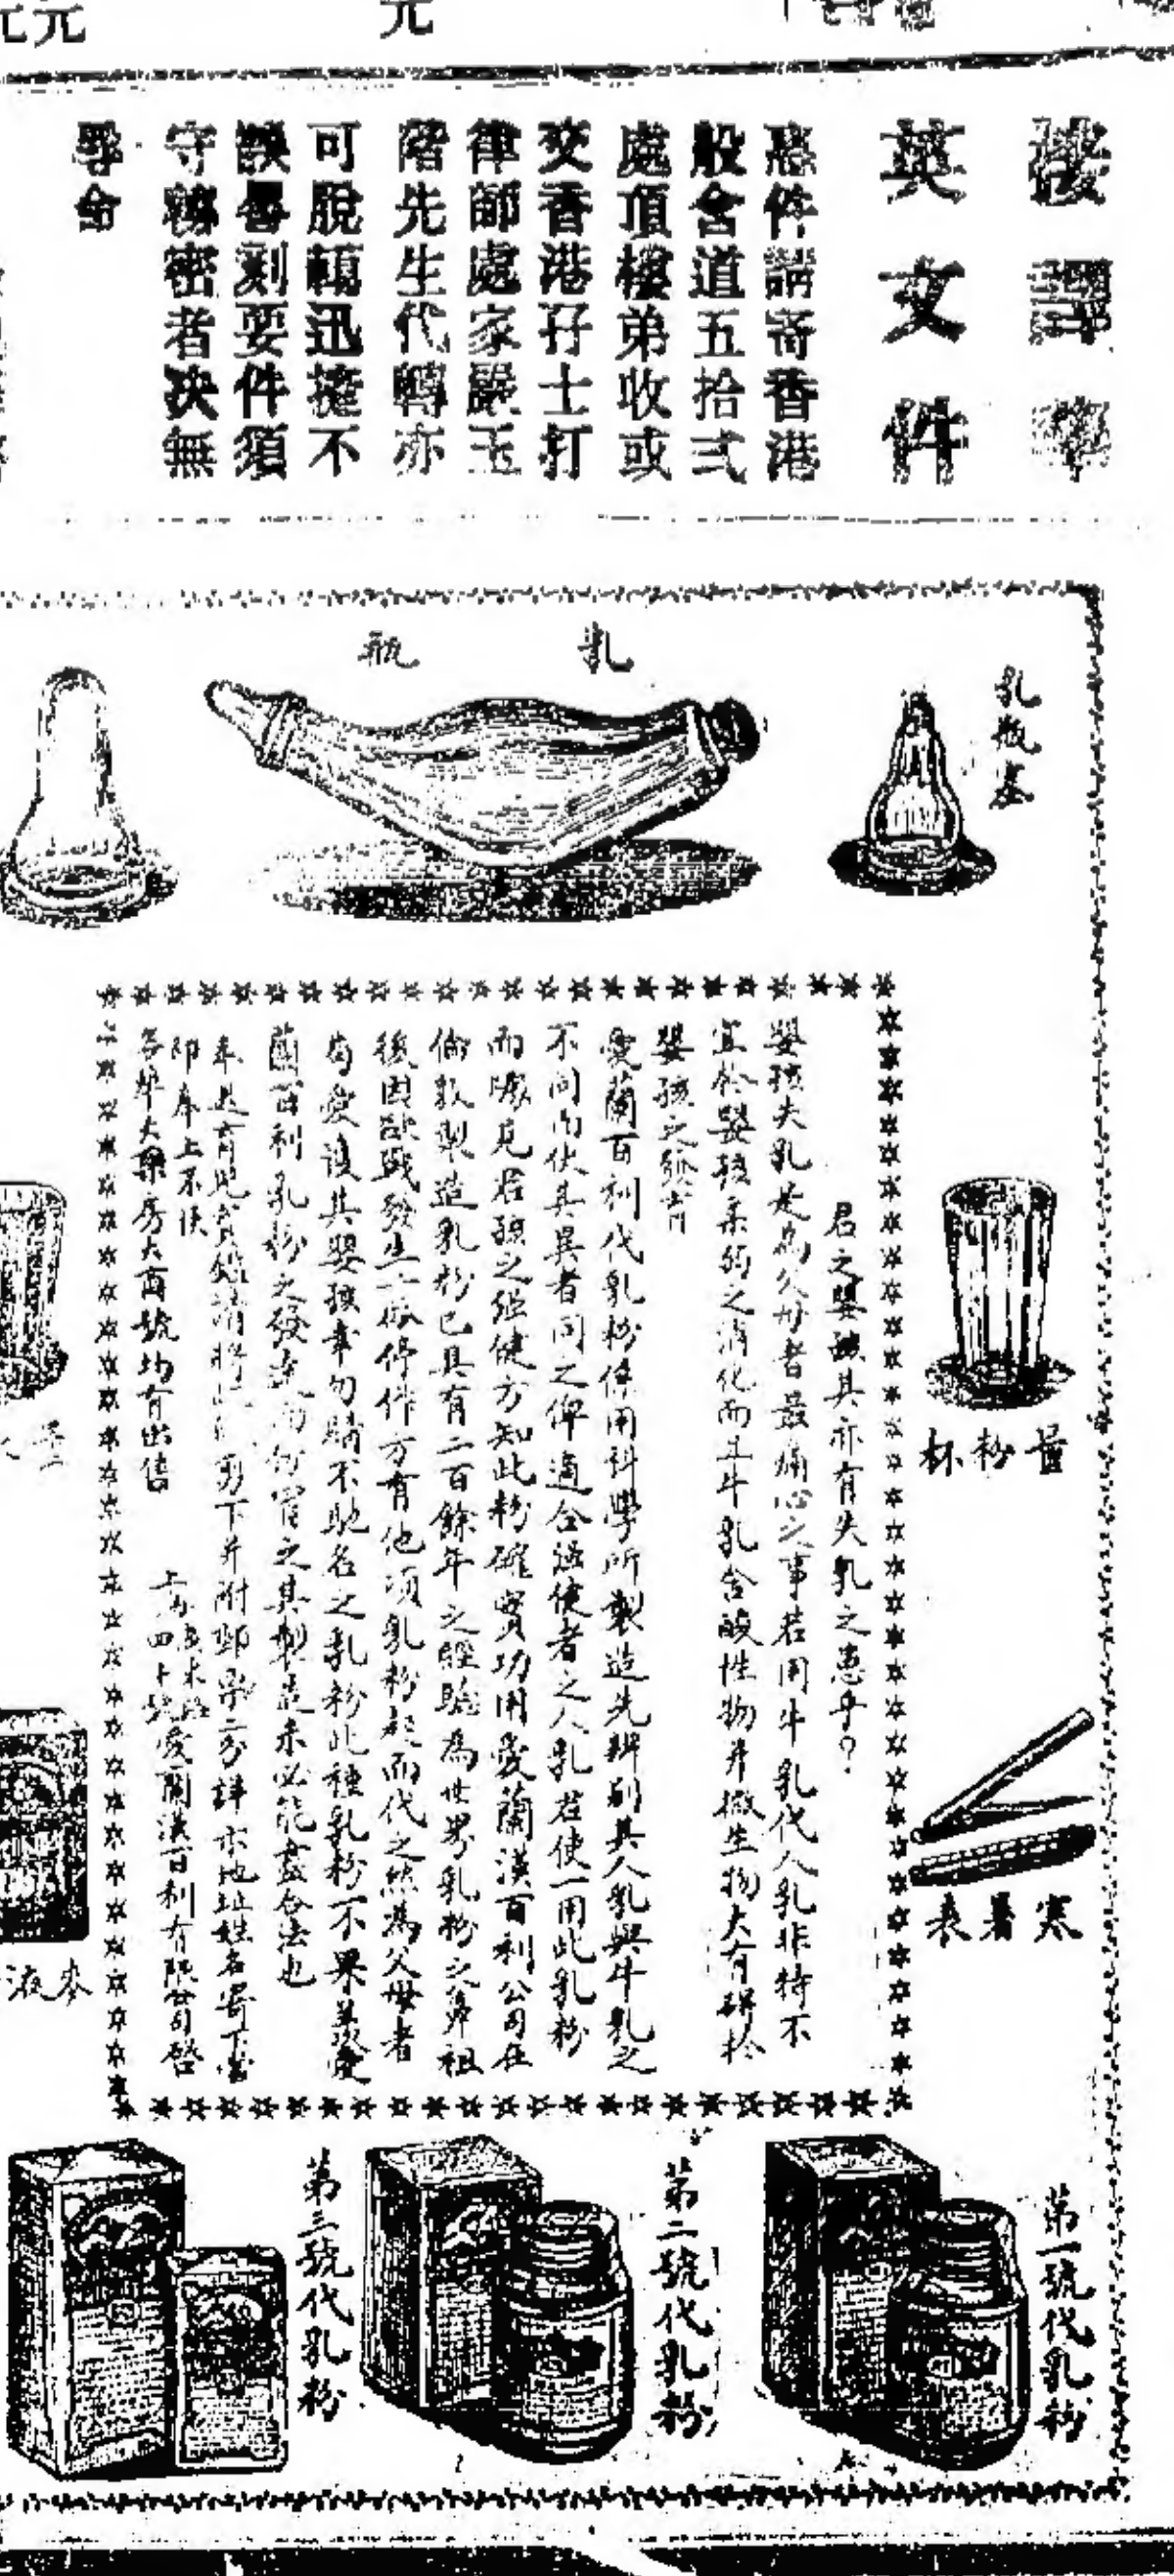 接譯華
英文件
惠件請寄香港
般含道五拾弍
處頂樓弟收或
交香港孖士打
律師處家嚴玉
階先生代轉亦
可脫稿迅捷不
誤晷刻要件須
守秘密者決無
辱命
乳瓶塞
乳瓶
量粉杯
寒暑表
君之嬰孩其亦有失乳之患乎？
嬰孩失乳是為父母者最痛心之事若用牛乳代人乳非特不
宜於嬰孩柔弱之消化而且牛乳含酸性物并微生物大有礙於
嬰孩之發育
愛蘭百利代乳粉係用科學所製造先辨別其人乳與牛乳之
不同而使其異者同之俾適合強健者之人乳若使一用此乳粉
而獲見君孩之強健方知此粉確實功用愛蘭漢百利公司在
倫敦製造乳粉已具有二百餘年之經驗為世界乳粉之鼻祖
後因歐戰發生一除停作方有他項乳粉起而代之然為父母者
苟愛護其嬰孩幸勿購不馳名之乳粉此種乳粉不果並愛
蘭百利乳粉之發達而仿冒之其製造未必能盡合法也
奉送育兒寶鑑請將此剪下并附郵票二分詳示地址姓名寄下當
即奉上不悞
各華大藥房大商號均有出售
四十號愛蘭漢百利有限公司啓
麥液
第一號代乳粉
第二號代乳粉
第三號代乳粉